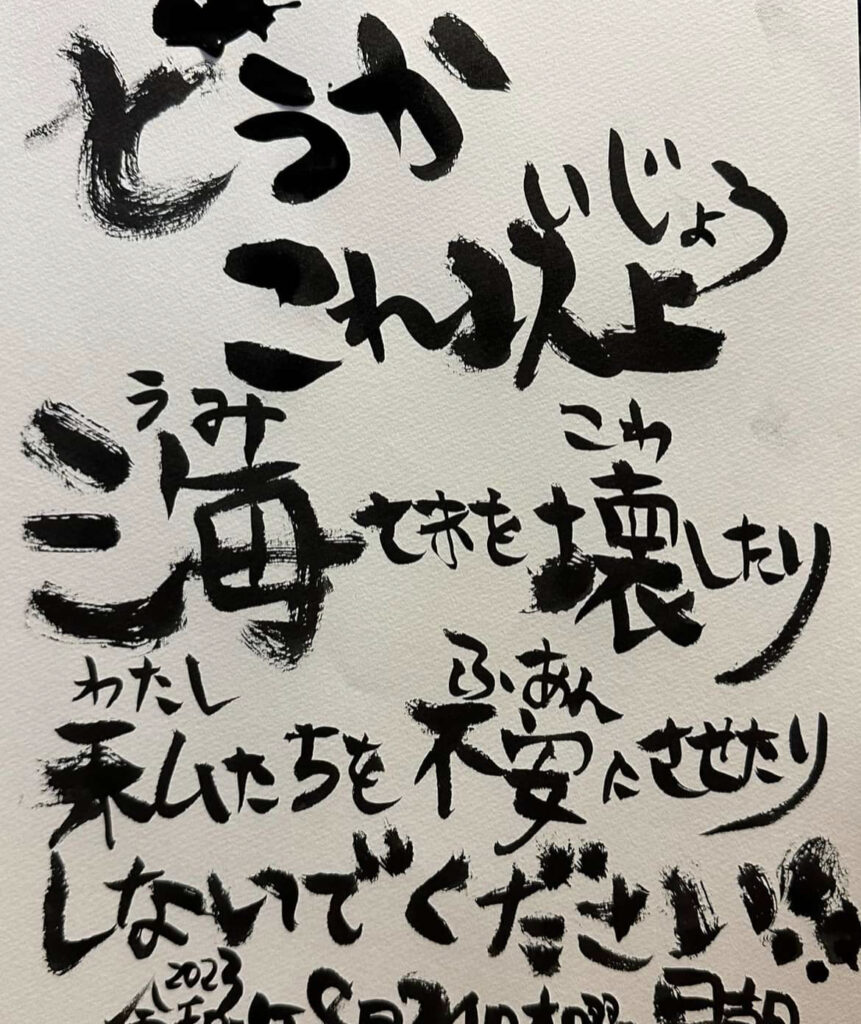 どうか
いじょう
これ以上
うみ こわ
海 を壊したり
わたし ふあん
私たちを不安にさせたり
しないでください!!
2023
8月24日木曜